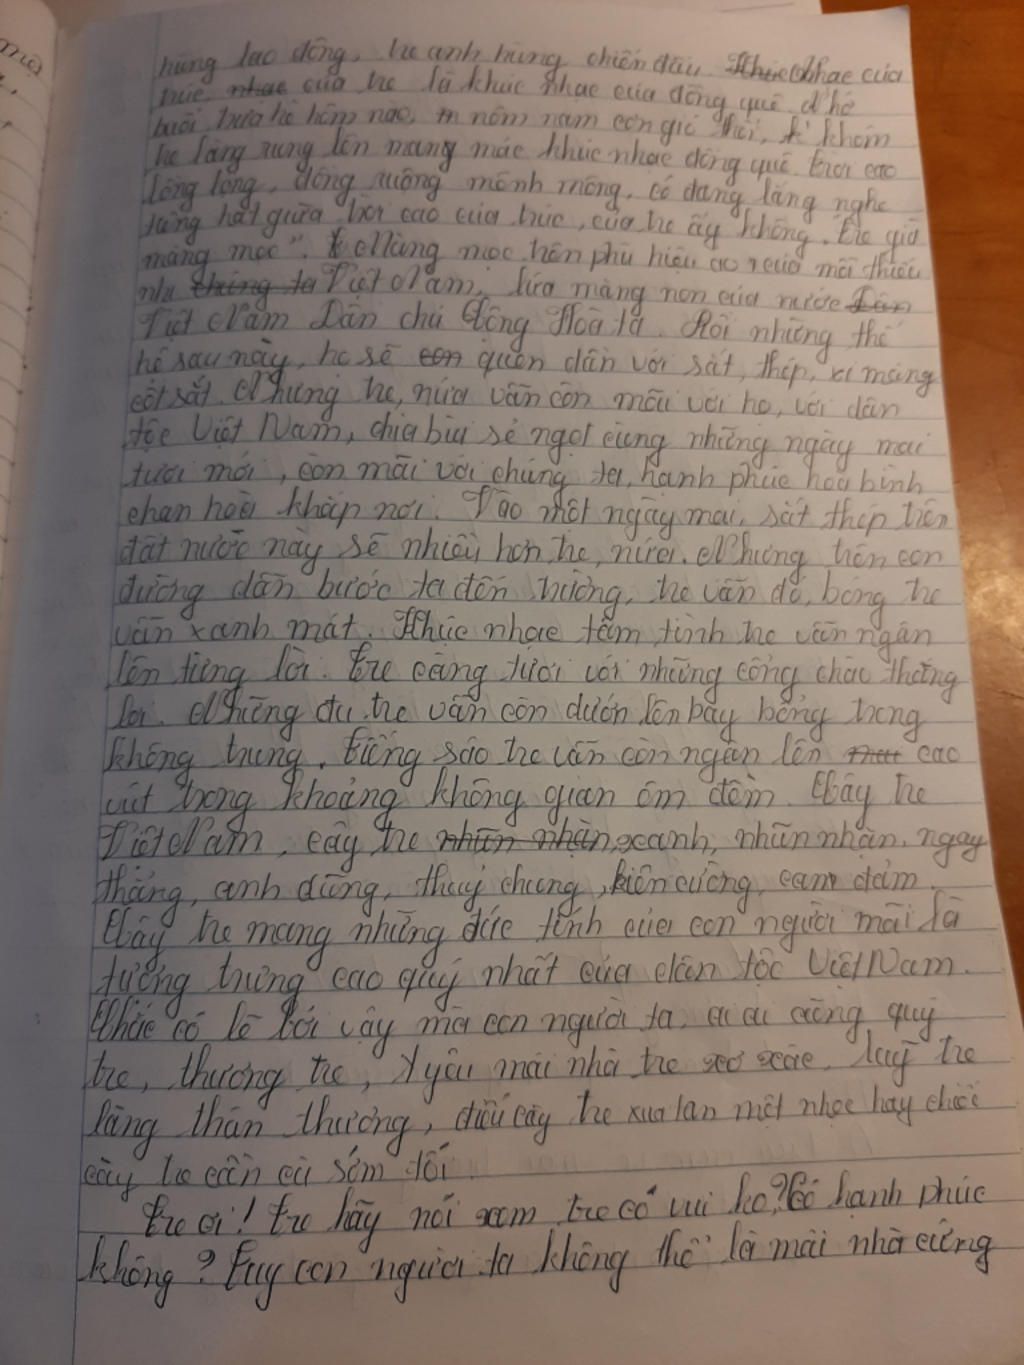 hùng lao động, tre anh hùng chiến đấu. Nhạc của
trúc, nhạc của tre là khúc nhạc của đồng quê. Nhớ
buổi trưa hè hôm nào, nồm nam cơn gió thổi, khóm
tre làng rung lên man mác khúc nhạc đồng quê. Trời cao
lồng lộng, đồng ruộng mênh mông, có đang lắng nghe
tiếng hát giữa trời cao của trúc, của tre ấy không. Tre già
măng mọc". Măng mọc trên phù hiệu áo của mỗi thiếu
nhi chúng ta Việt Nam, lứa măng non của nước Dân
Việt Nam Dân chủ Cộng Hoà ta. Rồi những thế
hệ sau này, họ sẽ còn quen dần với sắt, thép, xi măng
cốt sắt. Nhưng tre, nứa vẫn còn mãi với họ, với dân
tộc Việt Nam, chia bùi sẻ ngọt cùng những ngày mai
tươi mới, còn mãi với chúng ta, hạnh phúc hoà bình
chan hoà khắp nơi. Vào một ngày mai, sắt thép trên
đất nước này sẽ nhiều hơn tre, nứa. Nhưng trên con
đường dẫn bước ta đến trường, tre vẫn đó, bóng tre
vẫn xanh mát. Khúc nhạc tâm tình tre vẫn ngân
lên từng lời. Tre càng tươi với những cổng chào thắng
lợi. Những đu tre vẫn còn dướn lên bay bổng trong
không trung. Tiếng sáo tre vẫn còn ngân lên cao
vút trong khoảng không gian êm đềm. Cây tre
Việt Nam, cây tre nhũn nhặn xanh, nhũn nhặn, ngay
thẳng, anh dũng, thuỷ chung, kiên cường, can đảm.
Cây tre mang những đức tính của con người mãi là
tượng trưng cao quý nhất của dân tộc Việt Nam.
Chắc có lẽ bởi vậy mà con người ta, ai ai cũng quý
tre, thương tre, yêu mái nhà tre xơ xác, luỹ tre
làng thân thương, điếu cày tre xua tan mệt nhọc hay chiếc
cày tre cần cù sớm tối.
Tre ơi! Tre hãy nói xem tre có vui ko? Có hạnh phúc
không? Tuy con người ta không thể là mái nhà cứng